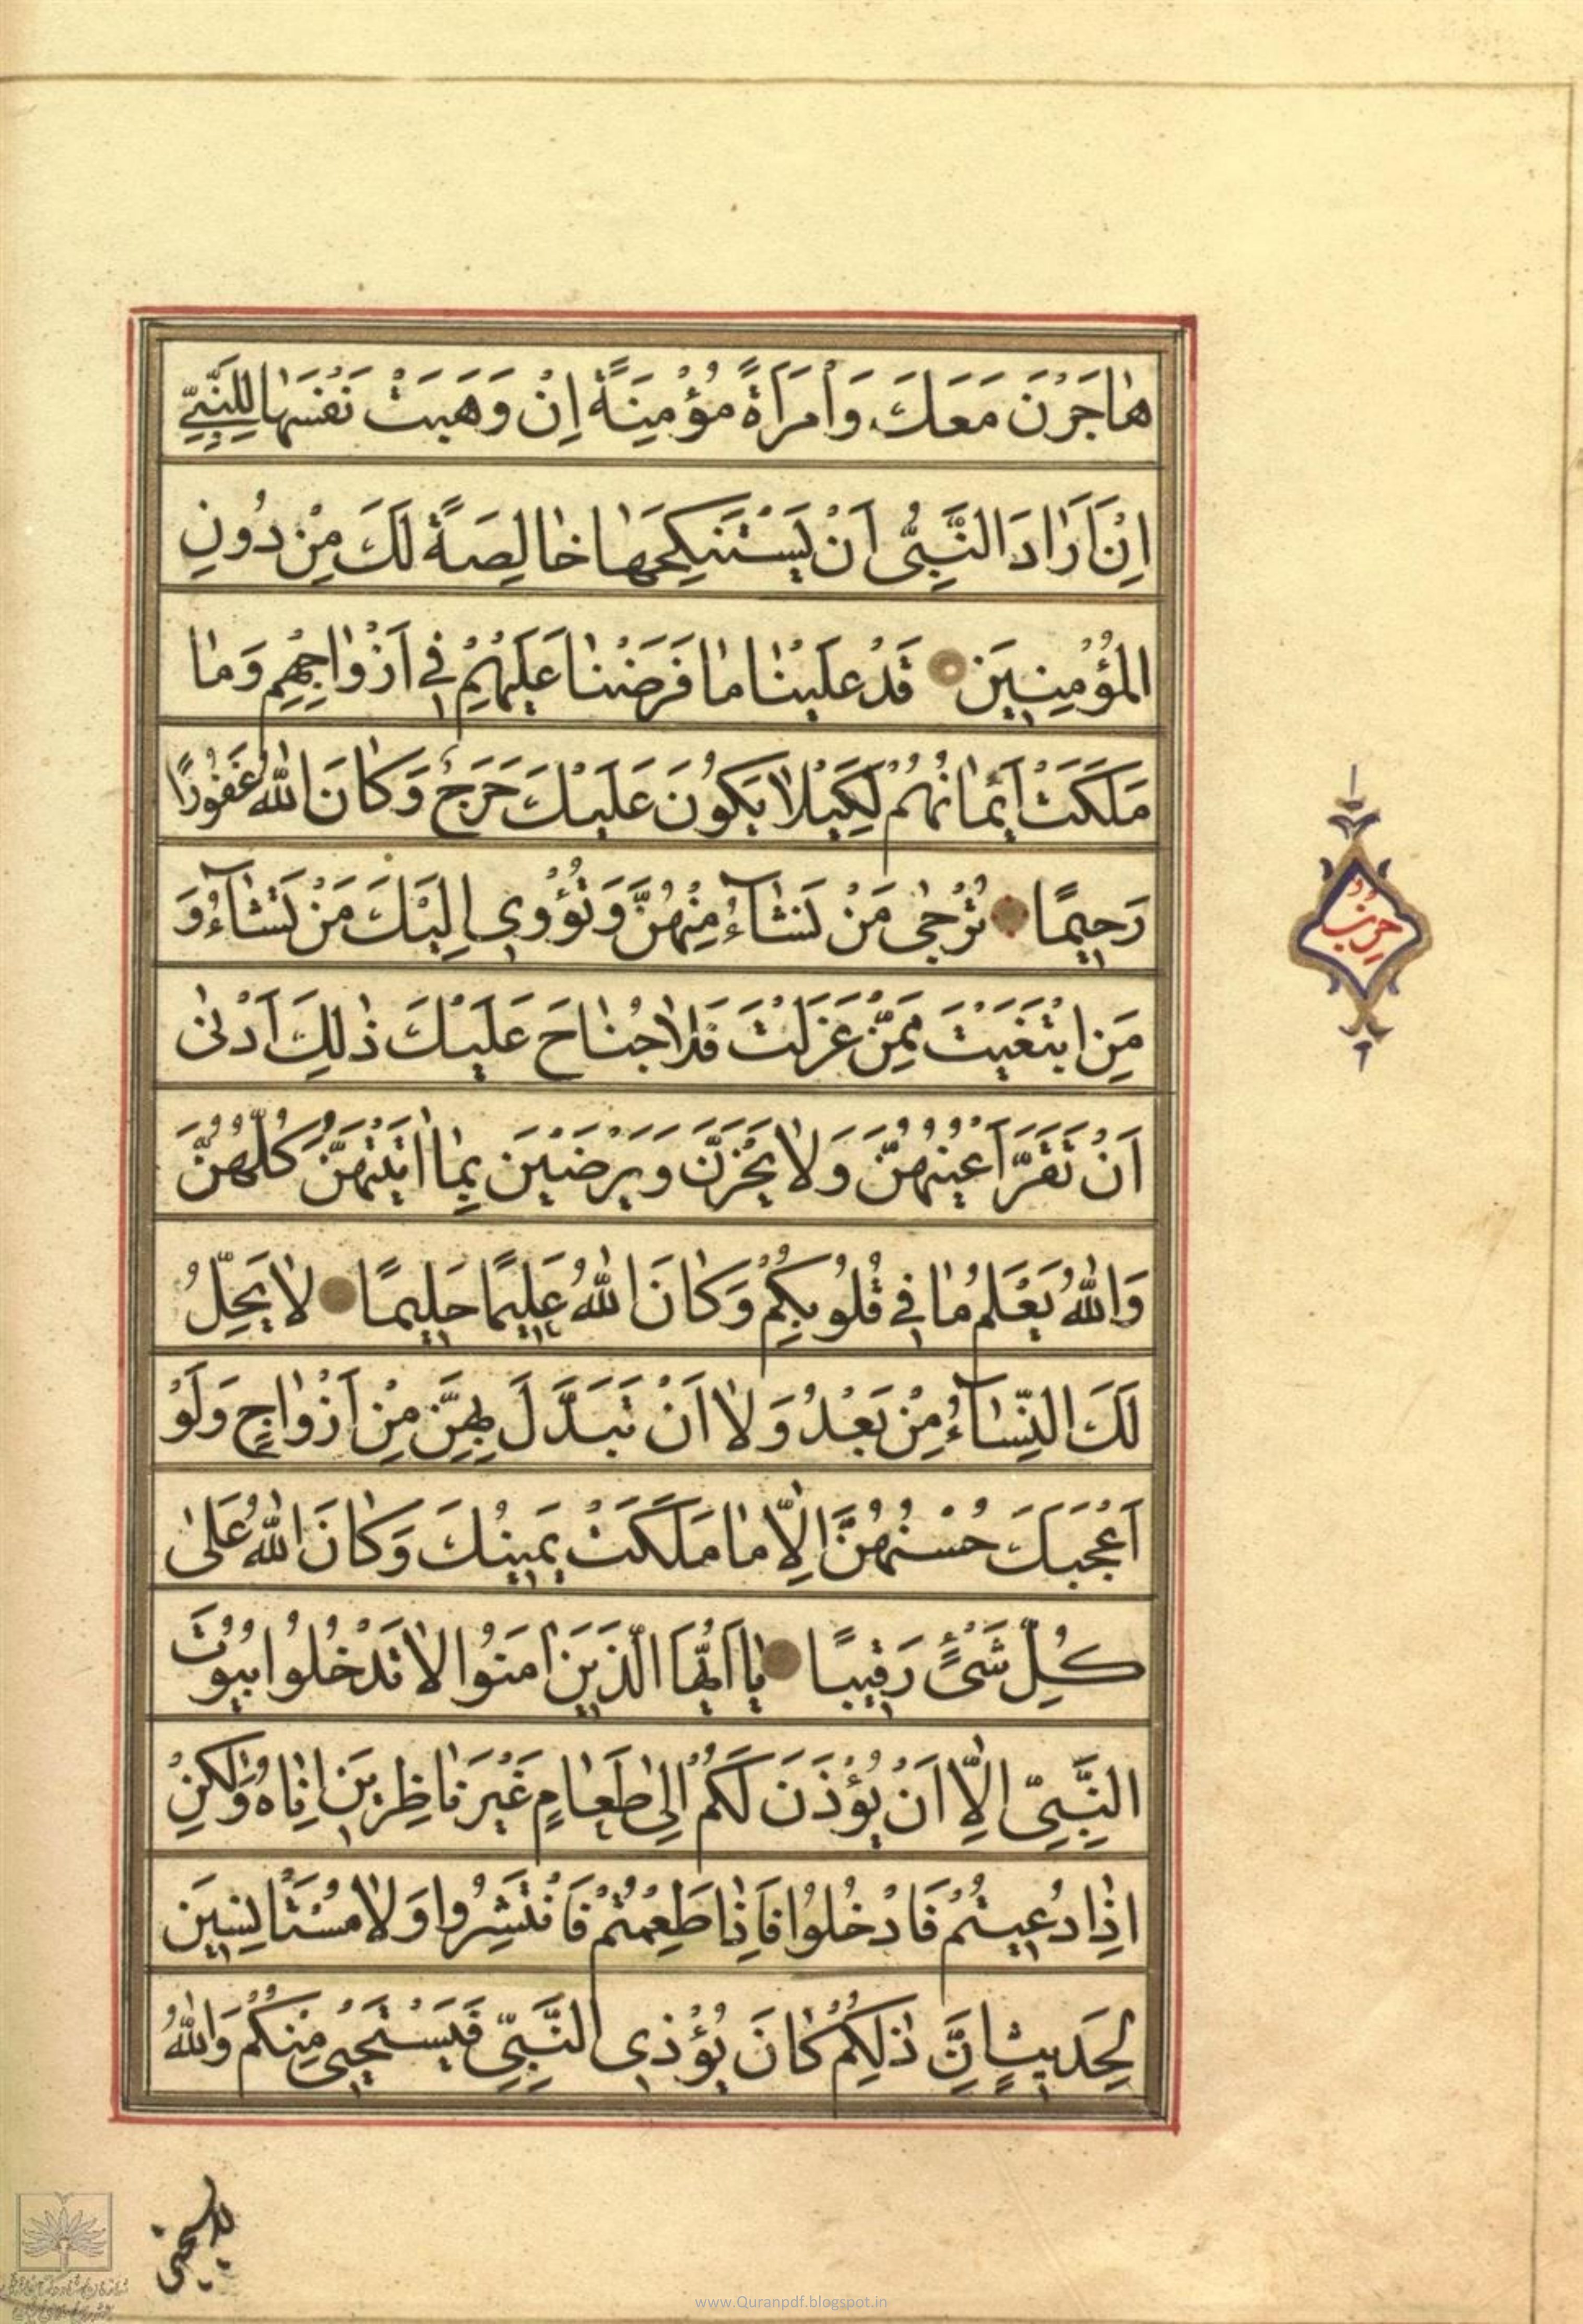 هٰاجَرْنَ مَعَكَ وَامْرَاَةً مُؤْمِنَةً اِنْ وَهَبَتْ نَفْسَهٰا لِلنَّبِيِّ
اِنْ اَرٰادَ النَّبِىُّ اَنْ يَسْتَنْكِحَهٰا خٰالِصَةً لَكَ مِنْ دُونِ
الْمُؤْمِنِينَ قَدْ عَلِمْنٰا مٰا فَرَضْنٰا عَلَيْهِمْ فِى اَزْوٰاجِهِمْ وَمٰا
مَلَكَتْ اَيْمٰانُهُمْ لِكَيْلٰا يَكُونَ عَلَيْكَ حَرَجٌ وَكٰانَ اللّٰهُ غَفُورًا
رَحِيمًا تُرْجِى مَنْ تَشٰآءُ مِنْهُنَّ وَتُؤْوِى اِلَيْكَ مَنْ تَشٰآءُ وَ
مَنِ ابْتَغَيْتَ مِمَّنْ عَزَلْتَ فَلٰا جُنٰاحَ عَلَيْكَ ذٰلِكَ اَدْنٰى
اَنْ تَقَرَّ اَعْيُنُهُنَّ وَلٰا يَحْزَنَّ وَيَرْضَيْنَ بِمٰا اٰتَيْتَهُنَّ كُلُّهُنَّ
وَاللّٰهُ يَعْلَمُ مٰا فِى قُلُوبِكُمْ وَكٰانَ اللّٰهُ عَلِيمًا حَلِيمًا لٰا يَحِلُّ
لَكَ النِّسٰآءُ مِنْ بَعْدُ وَلٰا اَنْ تَبَدَّلَ بِهِنَّ مِنْ اَزْوٰاجٍ وَلَوْ
اَعْجَبَكَ حُسْنُهُنَّ اِلّٰا مٰا مَلَكَتْ يَمِينُكَ وَكٰانَ اللّٰهُ عَلىٰ
كُلِّ شَىْءٍ رَقِيبًا يٰا اَيُّهَا الَّذِينَ اٰمَنُوا لٰا تَدْخُلُوا بُيُوتَ
النَّبِىِّ اِلّٰا اَنْ يُؤْذَنَ لَكُمْ اِلىٰ طَعٰامٍ غَيْرَ نٰاظِرِينَ اِنٰاهُ وَلٰكِنْ
اِذٰا دُعِيتُمْ فَادْخُلُوا فَاِذٰا طَعِمْتُمْ فَانْتَشِرُوا وَلٰا مُسْتَأْنِسِينَ
لِحَدِيثٍ اِنَّ ذٰلِكُمْ كٰانَ يُؤْذِى النَّبِىَّ فَيَسْتَحْيِى مِنْكُمْ وَاللّٰهُ
لايستحيى
www.Quranpdf.blogspot.in